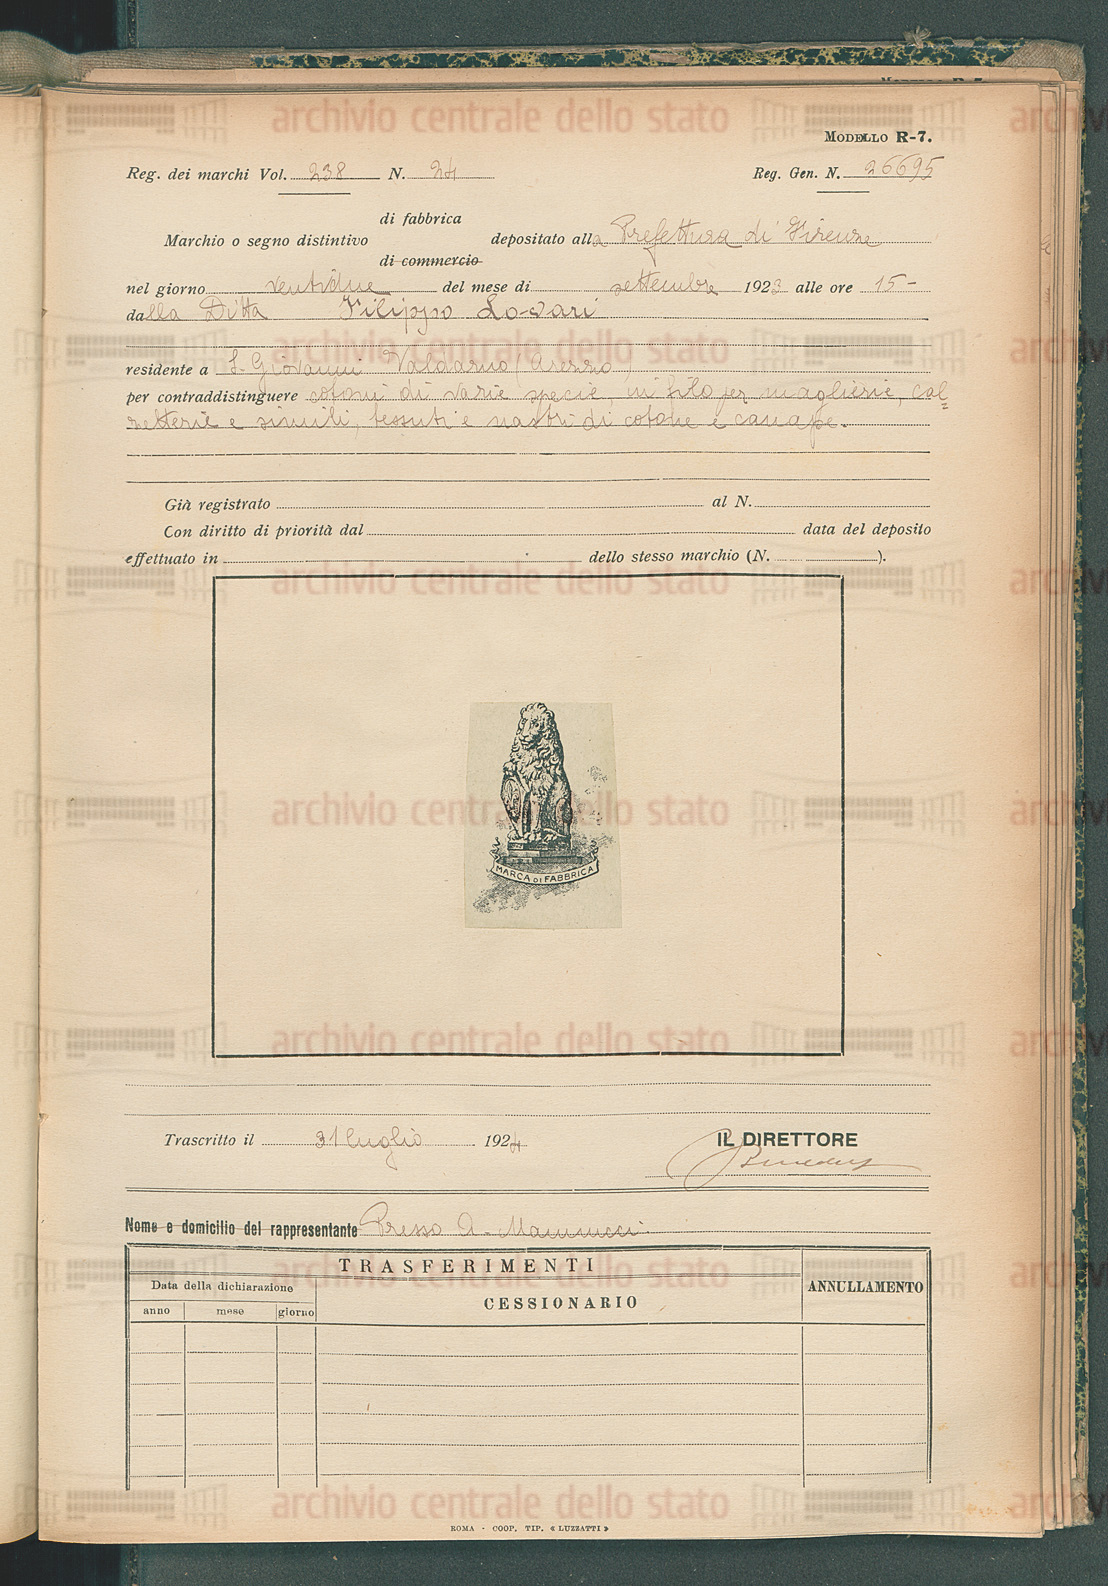 MODELLO R-7.
Reg. dei marchi Vol. 238 N. 24 Reg. Gen. N. 26695
di fabbrica
Marchio o segno distintivo depositato alla Prefettura di Firenze
di commercio
nel giorno ventidue del mese di settembre 1923 alle ore 15-
dalla Ditta Filippo Lovari
residente a S. Giovanni Valdarno (Arezzo)
per contraddistinguere cotoni di varie specie, in filo per maglierie, cal=
zetterie e simili, tessuti e nastri di cotone e canape.
Già registrato al N.
Con diritto di priorità dal data del deposito
effettuato in dello stesso marchio (N. ).
MARCA DI FABBRICA
Trascritto il 31 luglio 1924 IL DIRETTORE
Nome e domicilio del rappresentante Presso A. Mannucci
TRASFERIMENTI
Data della dichiarazione
ANNULLAMENTO
CESSIONARIO
anno mese giorno
ROMA - COOP. TIP. « LUZZATTI »
archivio centrale dello stato